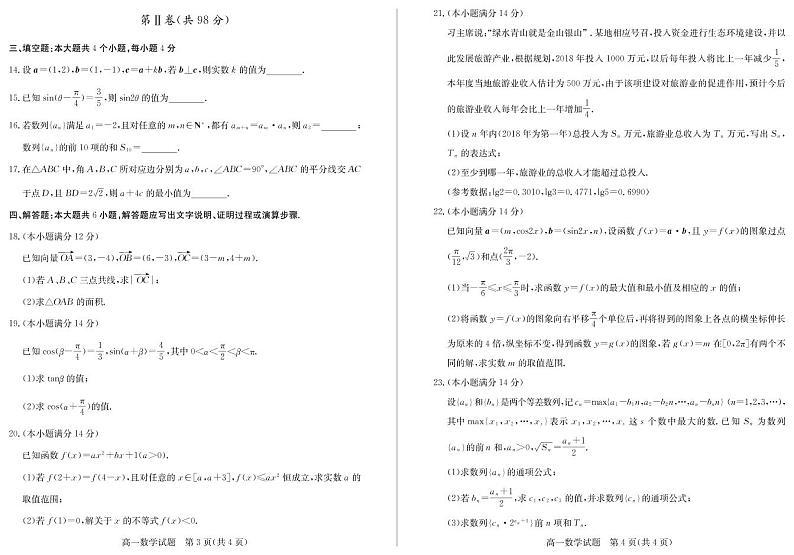 第Ⅱ卷(共98分)
三、填空题:本大题共4个小题,每小题4分
14.设a=(1,2),b=(1,-1),c=a+kb,若b⊥c,则实数k的值为________.
15.已知sin(θ-π/4)=3/5,则sin2θ的值为________.
16.若数列{aₙ}满足a₁=-2,且对任意的m,n∈N*,都有aₘ₊ₙ=aₘ·aₙ,则a₂=________;
数列{aₙ}的前10项的和S₁₀=________.
17.在△ABC中,角A,B,C所对应边分别为a,b,c,∠ABC=90°,∠ABC的平分线交AC
于点D,且BD=2√2,则a+4c的最小值为________.
四、解答题:本大题共6小题,解答题应写出文字说明、证明过程或演算步骤.
18.(本小题满分12分)
已知向量OA=(3,-4),OB=(6,-3),OC=(3-m,4+m).
(1)若A、B、C三点共线,求|OC|;
(2)求△OAB的面积.
19.(本小题满分14分)
已知cos(β-π/4)=1/3,sin(α+β)=4/5,其中0<α<π/2<β<π.
(1)求tanβ的值;
(2)求cos(α+π/4)的值.
20.(本小题满分14分)
已知函数f(x)=ax²+bx+1(a>0).
(1)若f(2+x)=f(4-x),且对任意的x∈[a,a+3],f(x)≤ax²恒成立,求实数a的
取值范围;
(2)若f(1)=0,解关于x的不等式f(x)<0.
高一数学试题 第3页(共4页)
21.(本小题满分14分)
习主席说:“绿水青山就是金山银山”.某地相应号召,投入资金进行生态环境建设,并以
此发展旅游产业,根据规划,2018年投入1000万元,以后每年投入将比上一年减少1/5,
本年度当地旅游业收入估计为500万元,由于该项建设对旅游业的促进作用,预计今后
的旅游业收入每年会比上一年增加1/4.
(1)设n年内(2018年为第一年)总投入为Sₙ万元,旅游业总收入为Tₙ万元,写出Sₙ,
Tₙ的表达式;
(2)至少到哪一年,旅游业的总收入才能超过总投入.
(参考数据:lg2=0.3010,lg3=0.4771,lg5=0.6990)
22.(本小题满分14分)
已知向量a=(m,cos2x),b=(sin2x,n),设函数f(x)=a·b,且y=f(x)的图象过点
(π/12,√3)和点(2π/3,-2).
(1)当-π/6≤x≤π/3时,求函数y=f(x)的最大值和最小值及相应的x的值;
(2)将函数y=f(x)的图象向右平移π/4个单位后,再将得到的图象上各点的横坐标伸长
为原来的4倍,纵坐标不变,得到函数y=g(x)的图象,若g(x)=m在[0,2π]有两个不
同的解,求实数m的取值范围.
23.(本小题满分14分)
设{aₙ}和{bₙ}是两个等差数列,记cₙ=max{a₁-b₁n,a₂-b₂n,…,aₙ-bₙn}(n=1,2,3,…),
其中max{x₁,x₂,…,xₛ}表示x₁,x₂,…,xₛ这s个数中最大的数.已知Sₙ为数列
{aₙ}的前n和,aₙ>0,√Sₙ=(aₙ+1)/2.
(1)求数列{aₙ}的通项公式;
(2)若bₙ=(aₙ+1)/2,求c₁,c₂,c₃的值,并求数列{cₙ}的通项公式;
(3)求数列{cₙ·2^(cₙ+1)}前n项和Tₙ.
高一数学试题 第4页(共4页)